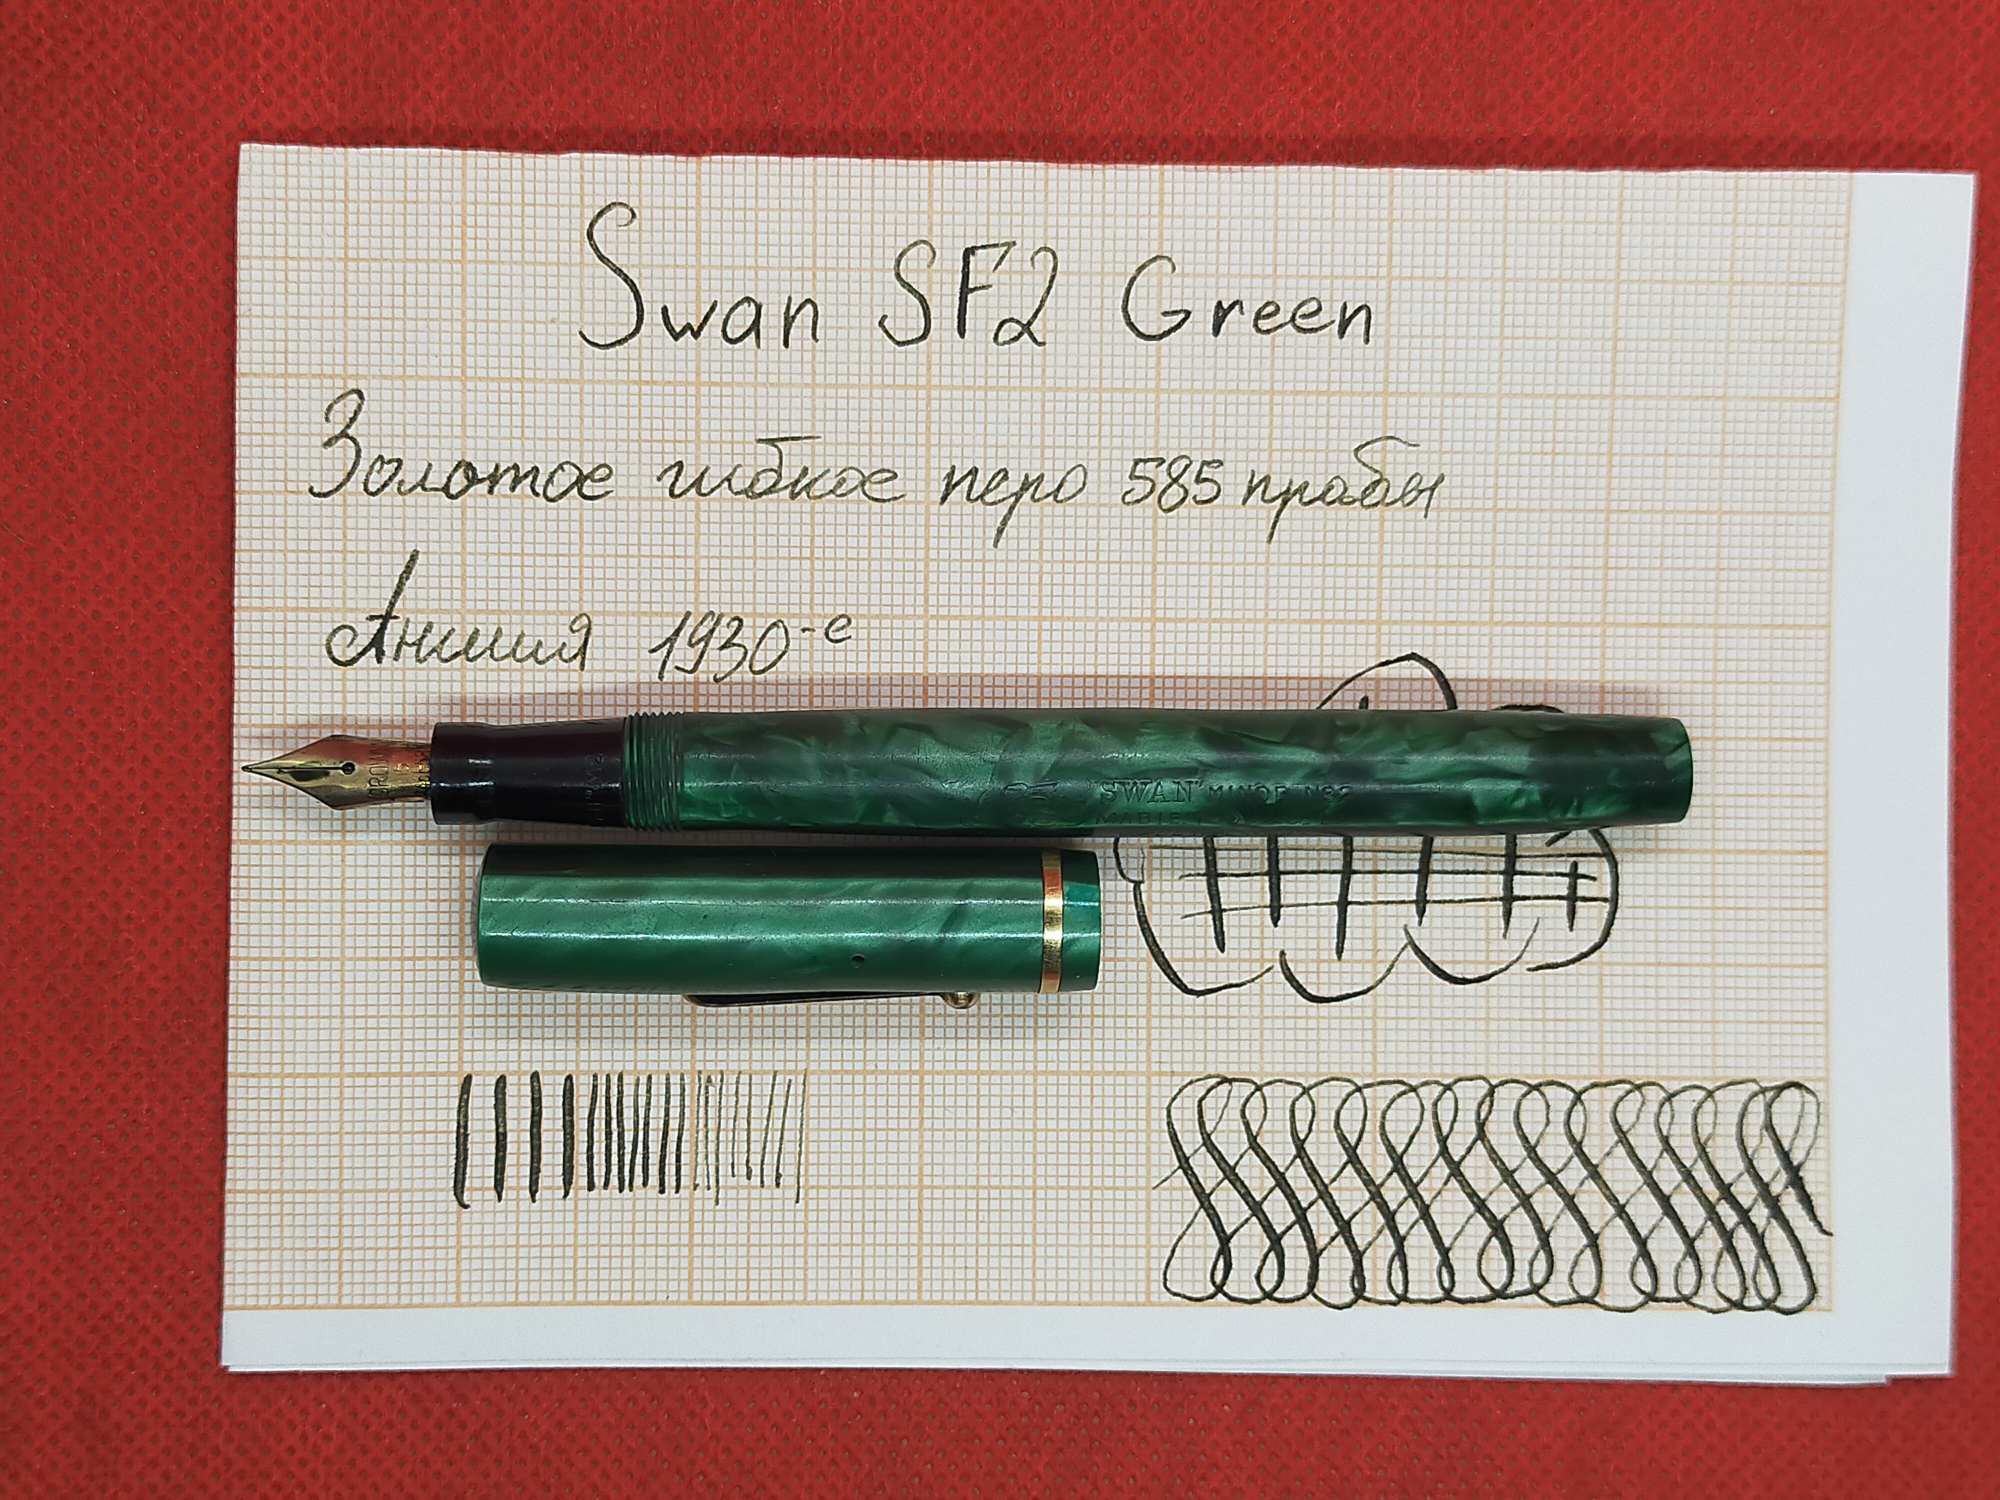 Swan SF2 Green
Золотое гибкое перо 585 пробы
Англия 1930-е
"SWAN" MINOR No2
MABIE